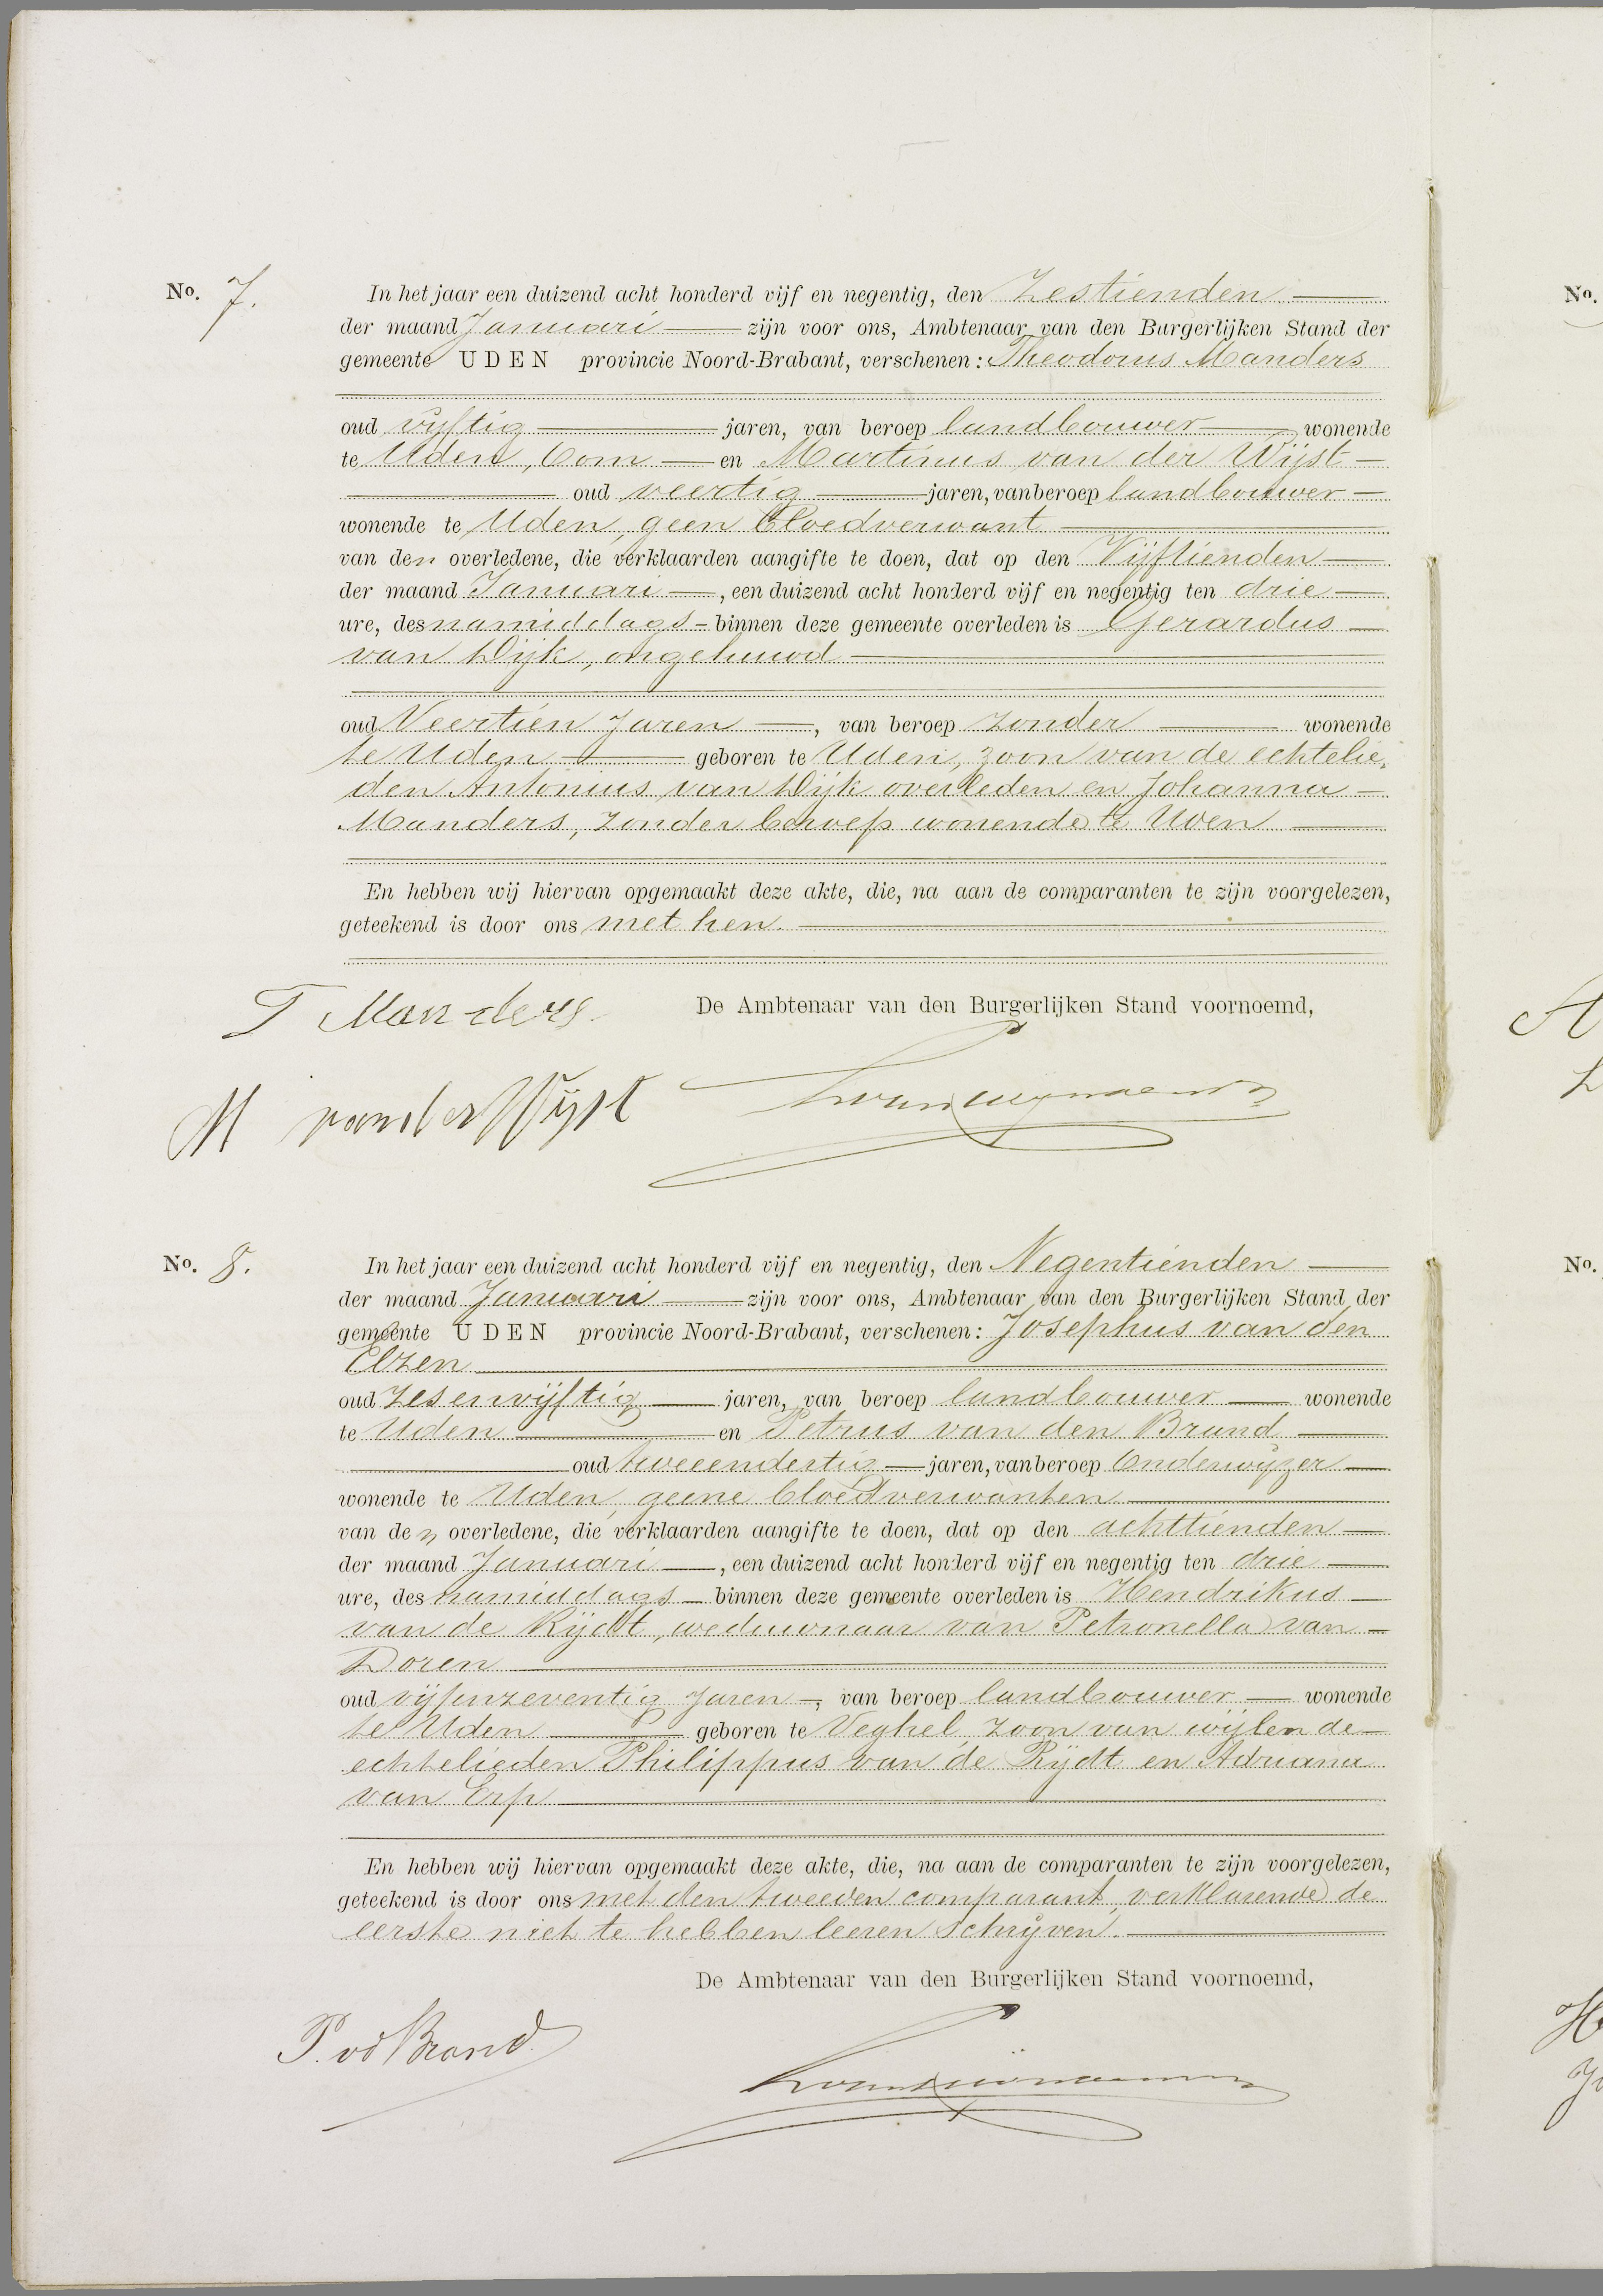 No. 7. In het jaar een duizend acht honderd vijf en negentig, den Zestienden
der maand Januari zijn voor ons, Ambtenaar van den Burgerlijken Stand der
gemeente UDEN provincie Noord-Brabant, verschenen: Theodorus Manders
oud vijftig jaren, van beroep landbouwer wonende
te Uden, Oom en Martinus van der Wijst
oud veertig jaren, van beroep landbouwer
wonende te Uden, geen Bloedverwant
van den overledene, die verklaarden aangifte te doen, dat op den Vijftienden
der maand Januari, een duizend acht honderd vijf en negentig ten drie
ure, des namiddags binnen deze gemeente overleden is Gerardus
van Dijk, ongehuwd
oud Veertien Jaren, van beroep zonder wonende
te Uden geboren te Uden, zoon van de echtelie,
den Antonius van Dijk overleden en Johanna
Manders, zonder beroep wonende te Uden
En hebben wij hiervan opgemaakt deze akte, die, na aan de comparanten te zijn voorgelezen,
geteekend is door ons met hen.
T Manders. De Ambtenaar van den Burgerlijken Stand voornoemd,
M van der Wijst
No. 8. In het jaar een duizend acht honderd vijf en negentig, den Negentienden
der maand Januari zijn voor ons, Ambtenaar van den Burgerlijken Stand der
gemeente UDEN provincie Noord-Brabant, verschenen: Josephus van den
Elzen
oud zesenvijftig jaren, van beroep landbouwer wonende
te Uden en Petrus van den Brand
oud tweeendertig jaren, van beroep Onderwijzer
wonende te Uden, geene bloedverwanten
van den overledene, die verklaarden aangifte te doen, dat op den achttienden
der maand Januari, een duizend acht honderd vijf en negentig ten drie
ure, des namiddags binnen deze gemeente overleden is Hendrikus
van de Rijdt, weduwnaar van Petronella van
Doren
oud vijfenzeventig Jaren, van beroep landbouwer wonende
te Uden geboren te Veghel zoon van wijlen de
echtelieden Philippus van de Rijdt en Adriana
van Erp
En hebben wij hiervan opgemaakt deze akte, die, na aan de comparanten te zijn voorgelezen,
geteekend is door ons met den tweeden comparant, verklarende de
eerste niet te hebben leeren schrijven.
De Ambtenaar van den Burgerlijken Stand voornoemd,
P. vd Brand
No.
No.